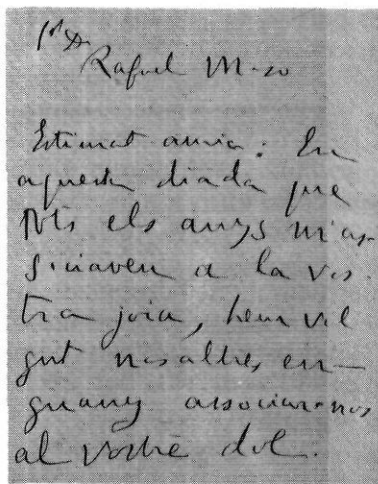 Sr Dn
Rafael Masó
Estimat amic: En
aquesta diada que
tots els anys m'as-
sociaveu a la vos-
tra joia, hem vol
gut nosaltres en-
guany associar-nos
al vostre dol.